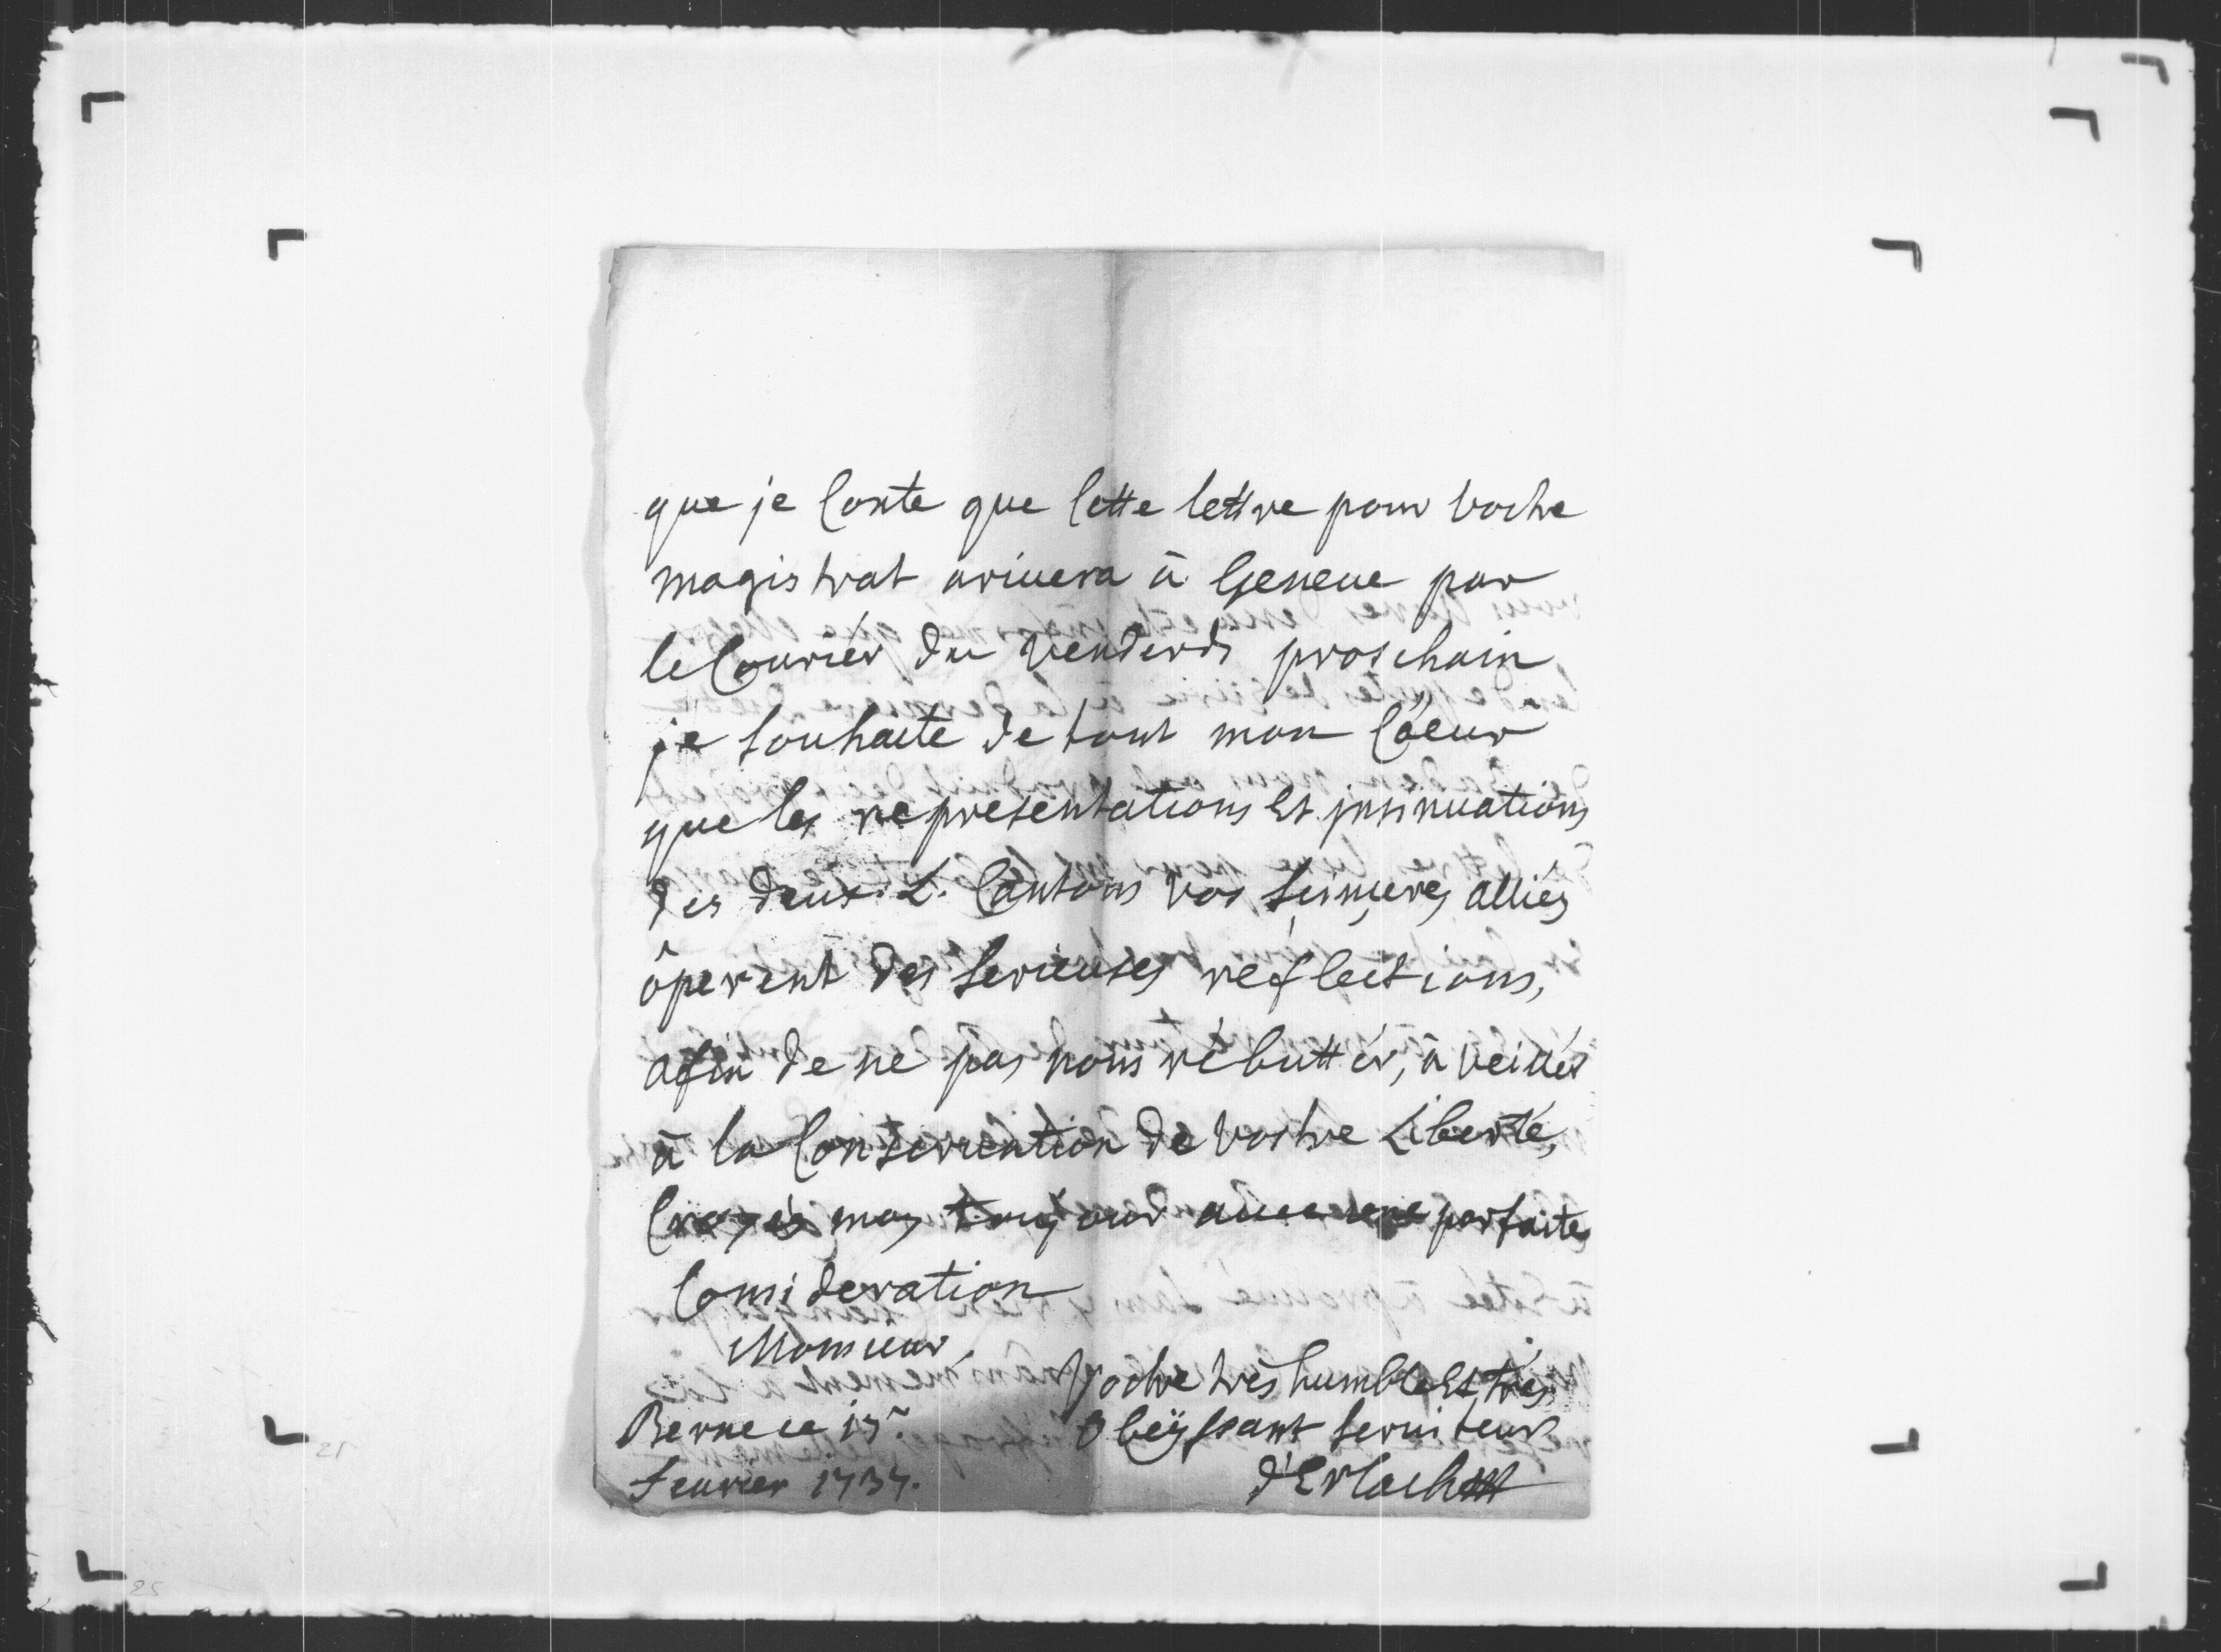 que je Conte que Cette lettre pour Vostre
magistrat arivera à Geneve par
le Couriér du Vendredi proschain
je souhaite de tout mon Coeur
que les representations Et jnsinuations
des deux L. Cantons Vos sinçeres alliés
ôperent des serieuses réflections,
afin de ne pas nous rébuttér, à veillér
à la Conservation de Vostre Liberté,
Croyés moy toujours avec une parfaite
Consideration
Monsieur,
Vostre trés humble Et trés
Berne ce 13.
Obeÿssant serviteur
fevrier 1737.
d'Erlach